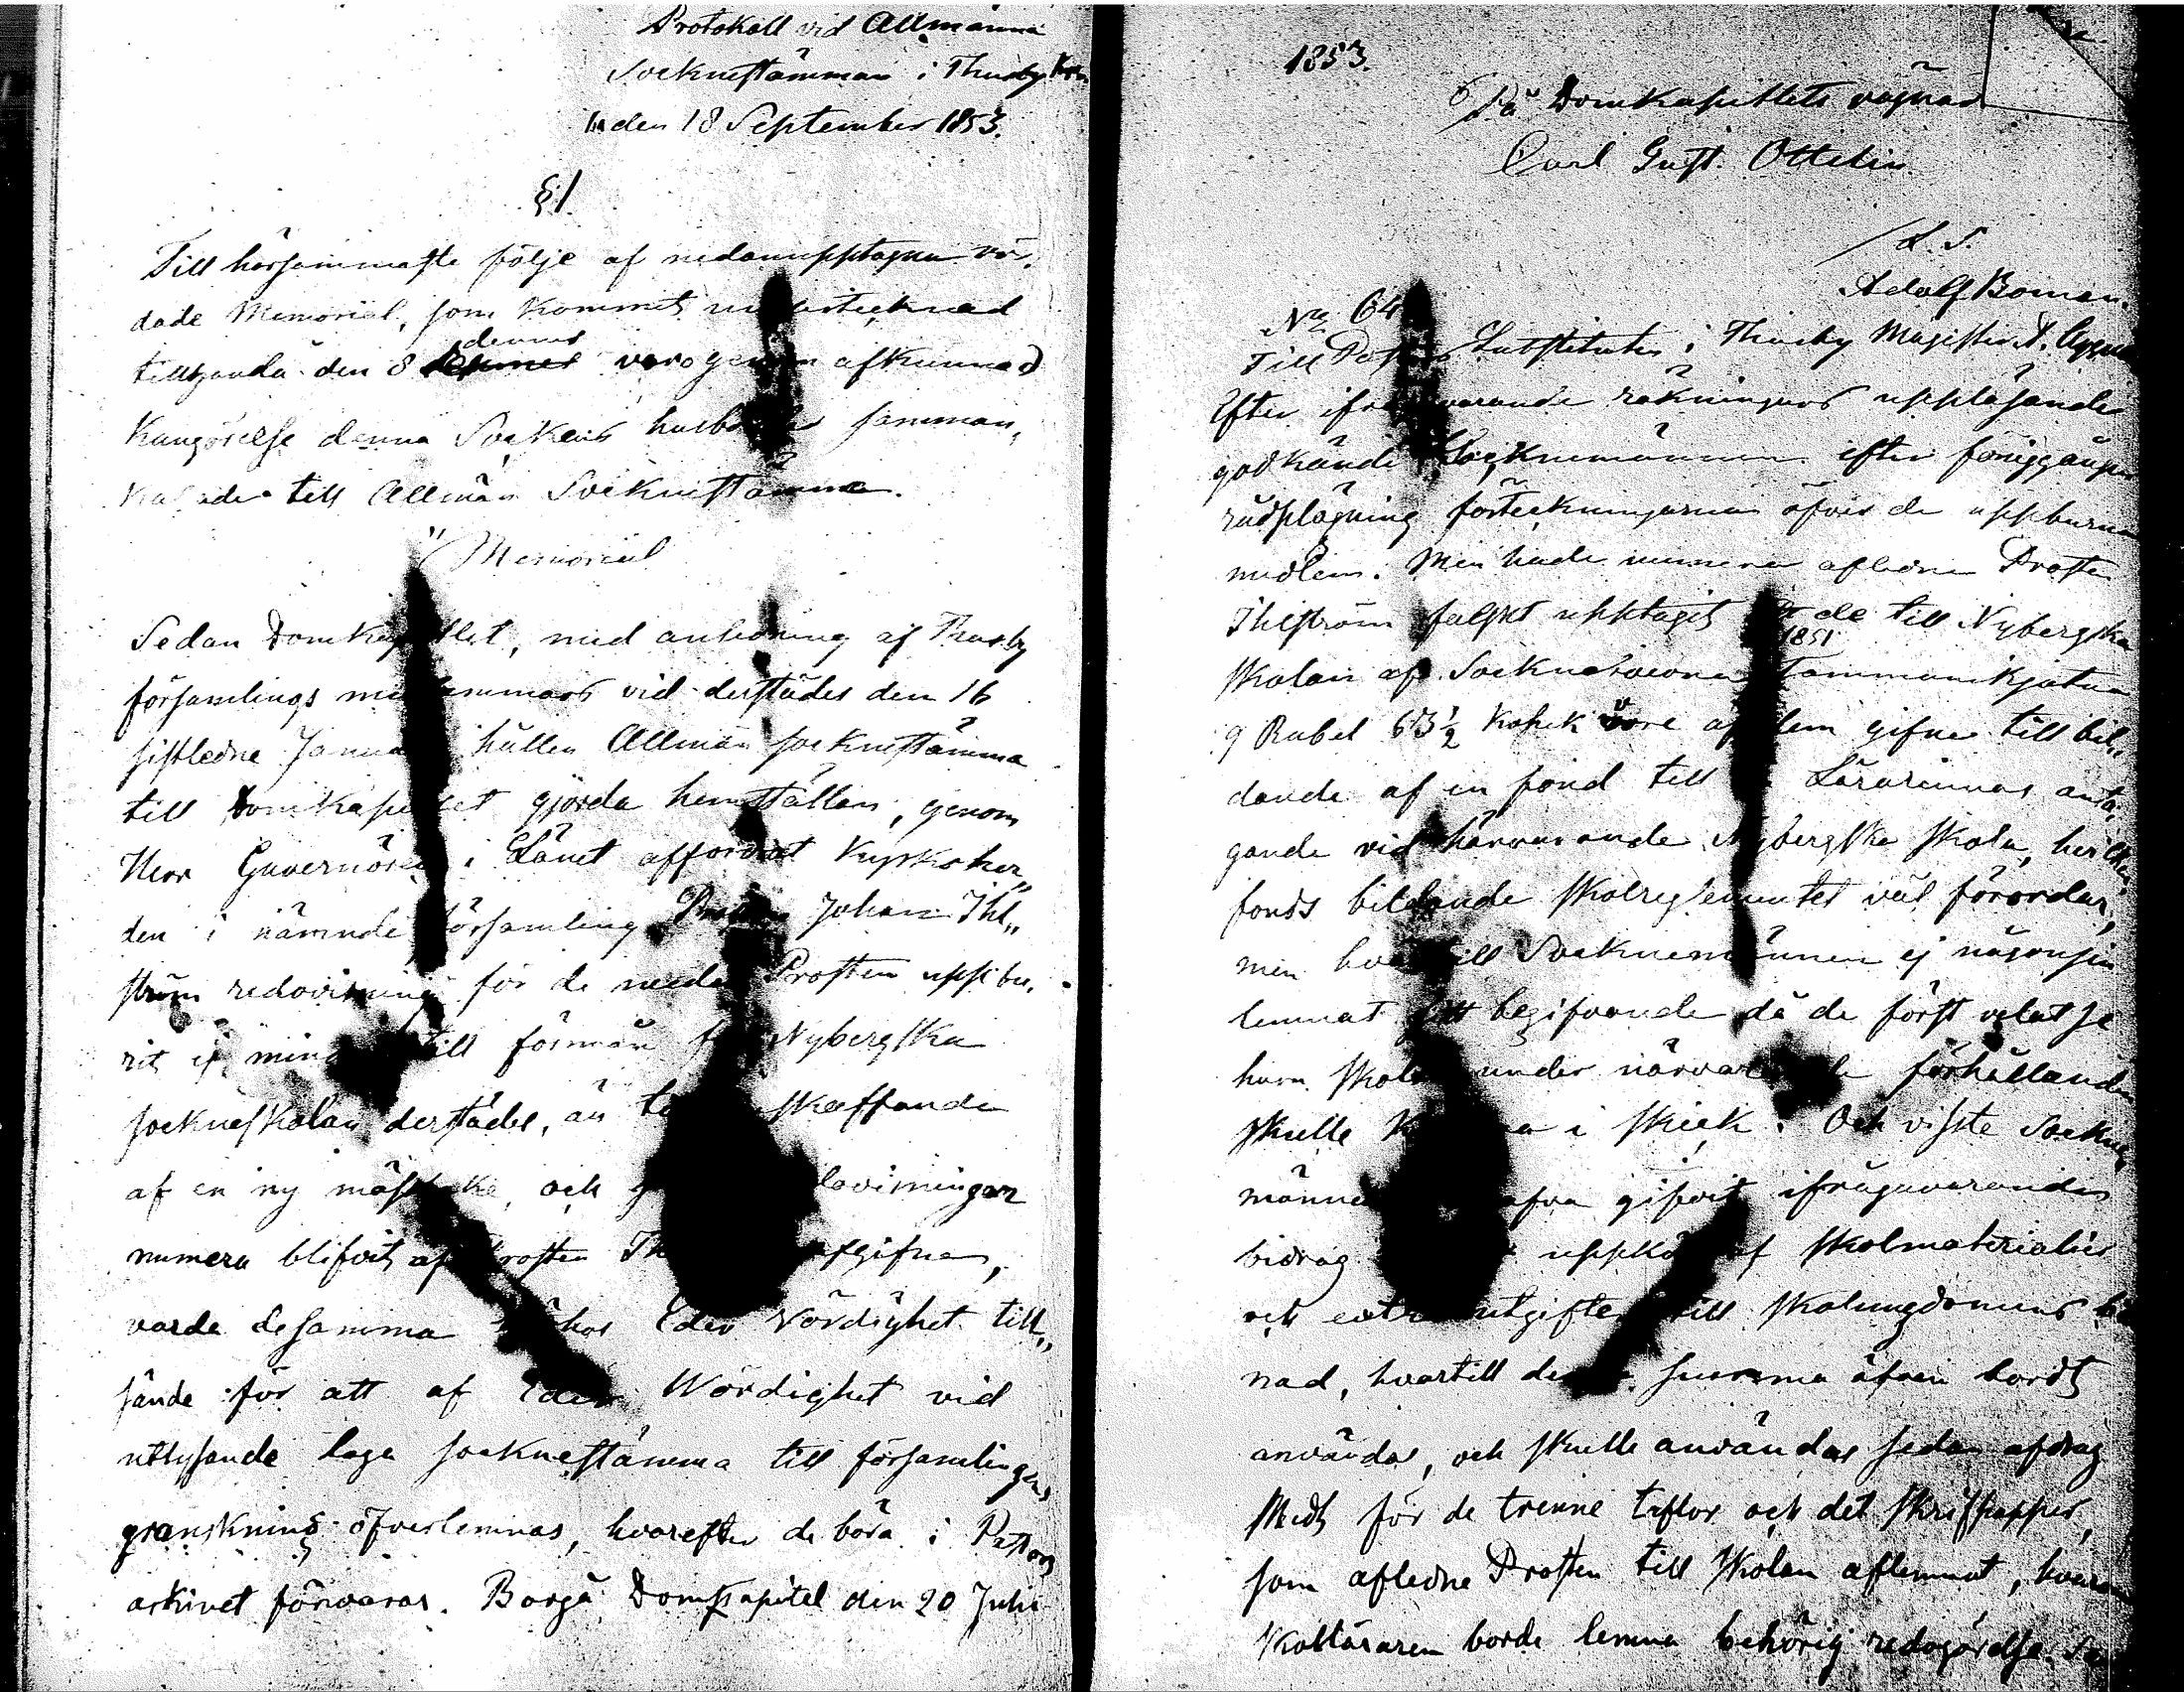 Protokoll vid Allmänna
Socknestämman i Thusby
den 18 September 1853.
§1.
Till hörsammaste följe af nedanupptagna vör„
dade Memorial, som kommit undertecknad
tillhanda den 8 dennes voro genom afkunnad
Kungörelse denna Sockens husbönder samman„
kallade till Allmän Socknestämma.
"Memorial
Sedan Domkapitlet, med anledning af Thusby
församlings medlemmars vid derstädes den 16
sistledne Januari hållen Allmän socknestämma
till Domkapitlet gjorda hemställan, genom
Herr Guvernören i Länet affordrat Kyrkoher„
den i nämnde församling Prosten Johan Ihl„
ström redovisning för de medel Prosten uppbu„
rit ej mindre till förmån för Nybergska
sockneskolan derstädes, än till skaffande
af en ny och
numera blifvit af Prosten afgifne,
varde desamma Eder Vördighet till„
sände för att af Eder Wördighet vid
utlysande laga socknestämma till församlingens
granskning öfverlemnas, hvarefter de böra i Pastors
arkivet förvaras. Borgå Domkapitel den 20 Juli
1853.
På Domkapitlets vägnar
Carl Gust. Ottelin
L. S.
Adolf Boman.
No 64
Till Pastors Substituten i Thusby Magister A.
Efter ifrågavarande räkningars uppläsande
godkände Socknemännen efter föregången
rådplägning förteckningarna öfver de uppburna
medlen. Men hade numera aflidne Prosten
Ihlström falskt upptagit att de till Nybergska
skolan af Sockneboerna 1851 sammanskjutna
9 Rubel 63½ Kopek vore af dem gifne till bil„
dande af en fond till Lärarinnas anta„
gande vid härvarande Nybergska skola, hvilken
fonds bildande skolreglementet väl förordar,
men hvartill Socknemännen ej någonsin
lemnat sitt begifvande då de först velat se
huru skolan under närvarande förhållanden
skulle komma i skick. Och visste Sockne„
männen gifvit ifrågavarande
bidrag uppköp af skolmaterialier
och extra utgifter till skolungdomens
nad, hvartill denna summa äfven bordt
användas, och skulle användas sedan afdrag
skedt för de trenne taflor och det skrifpapper,
som aflidne Prosten till skolan aflemnat, hvarom
skolläraren borde lemna behörig redogörelse.